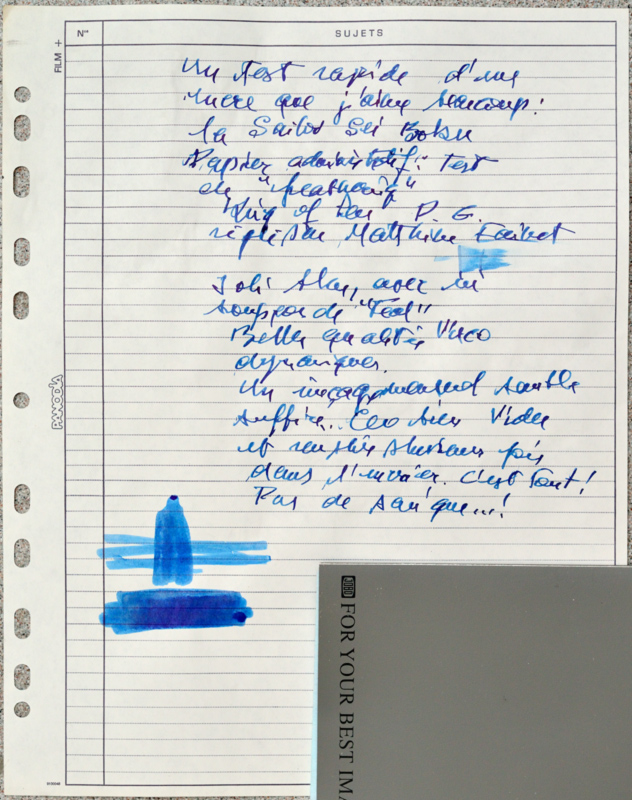 N°
SUJETS
FILM +
Un test rapide d'une
encre que j'aime beaucoup :
la Sailor Sei Boku
Papier administratif : Test
de "feathering"
King of Pen P. G.
Matthieu
Joli bleu, avec un
soupçon de "Teal"
Belles qualités Visco
dynamiques.
Un semble
suffire. bien vider
et remplir plusieurs fois
dans l'encrier. C'est tout !
Pas de panique...!
PANODIA
FOR YOUR BEST IMA